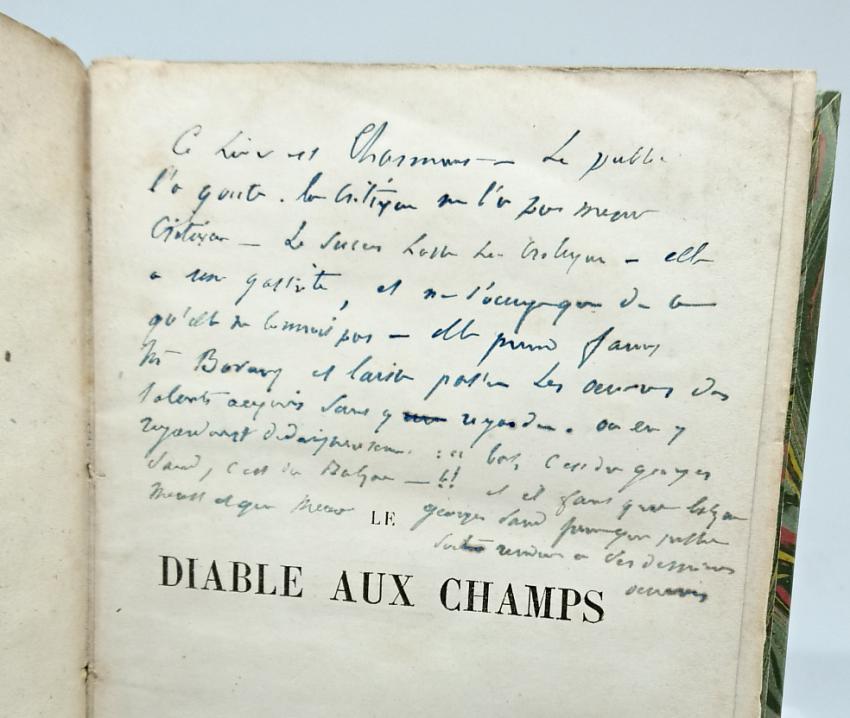 Ce livre est Charmant — Le public
l'a gouté. la Critique ne l'a pas meme
Critiqué — Le succes Lasse La Critique — elle
a un gastrite, et ne s'occupe que de ce
qu'elle ne connait pas — elle prend fanny
Me Bovary et laisse passer Les oeuvres des
talents acquis sans y regarder. ou en y
regardant dedaigneusement : :: bah, C'est du georges
Sand, C'est du Balzac — !! et il faut que Balzac
Meurt et que Meure georges Sand pour que justice
soit rendue a Ses dernieres
oeuvres
LE
DIABLE AUX CHAMPS